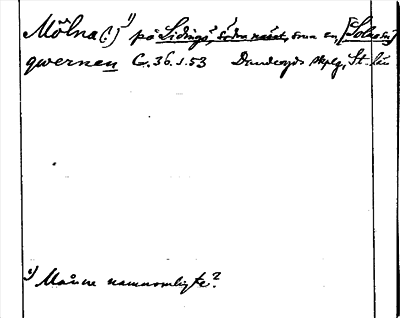 Mölna(?) 1) på Lidingö, södra näset, som en [Solna sn]
qwernen C.36.s.53 Danderyds skplg, St. län
1) Månne namnomligte?